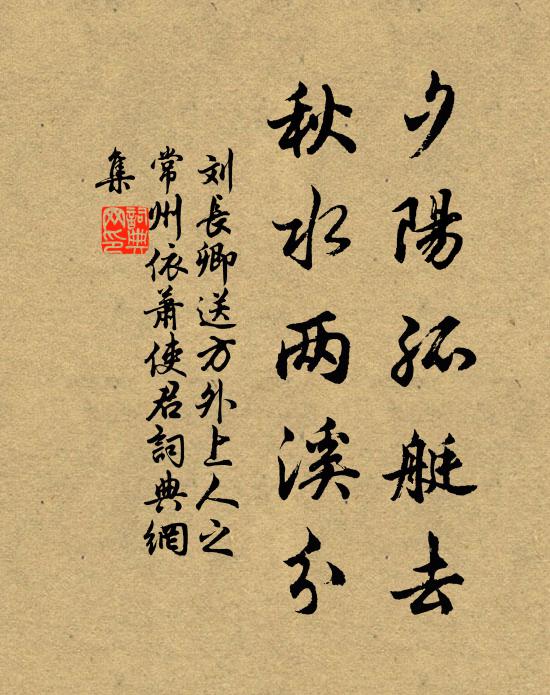 夕陽孤艇去
秋水两溪分
刘長卿送方外上人之
常州依蕭使君詞典網
集
詞典網印